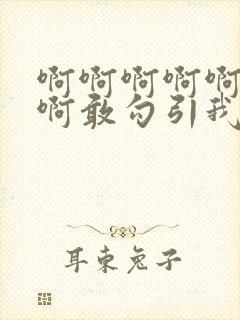 啊啊啊啊啊
啊敢勾引我
耳东兔子